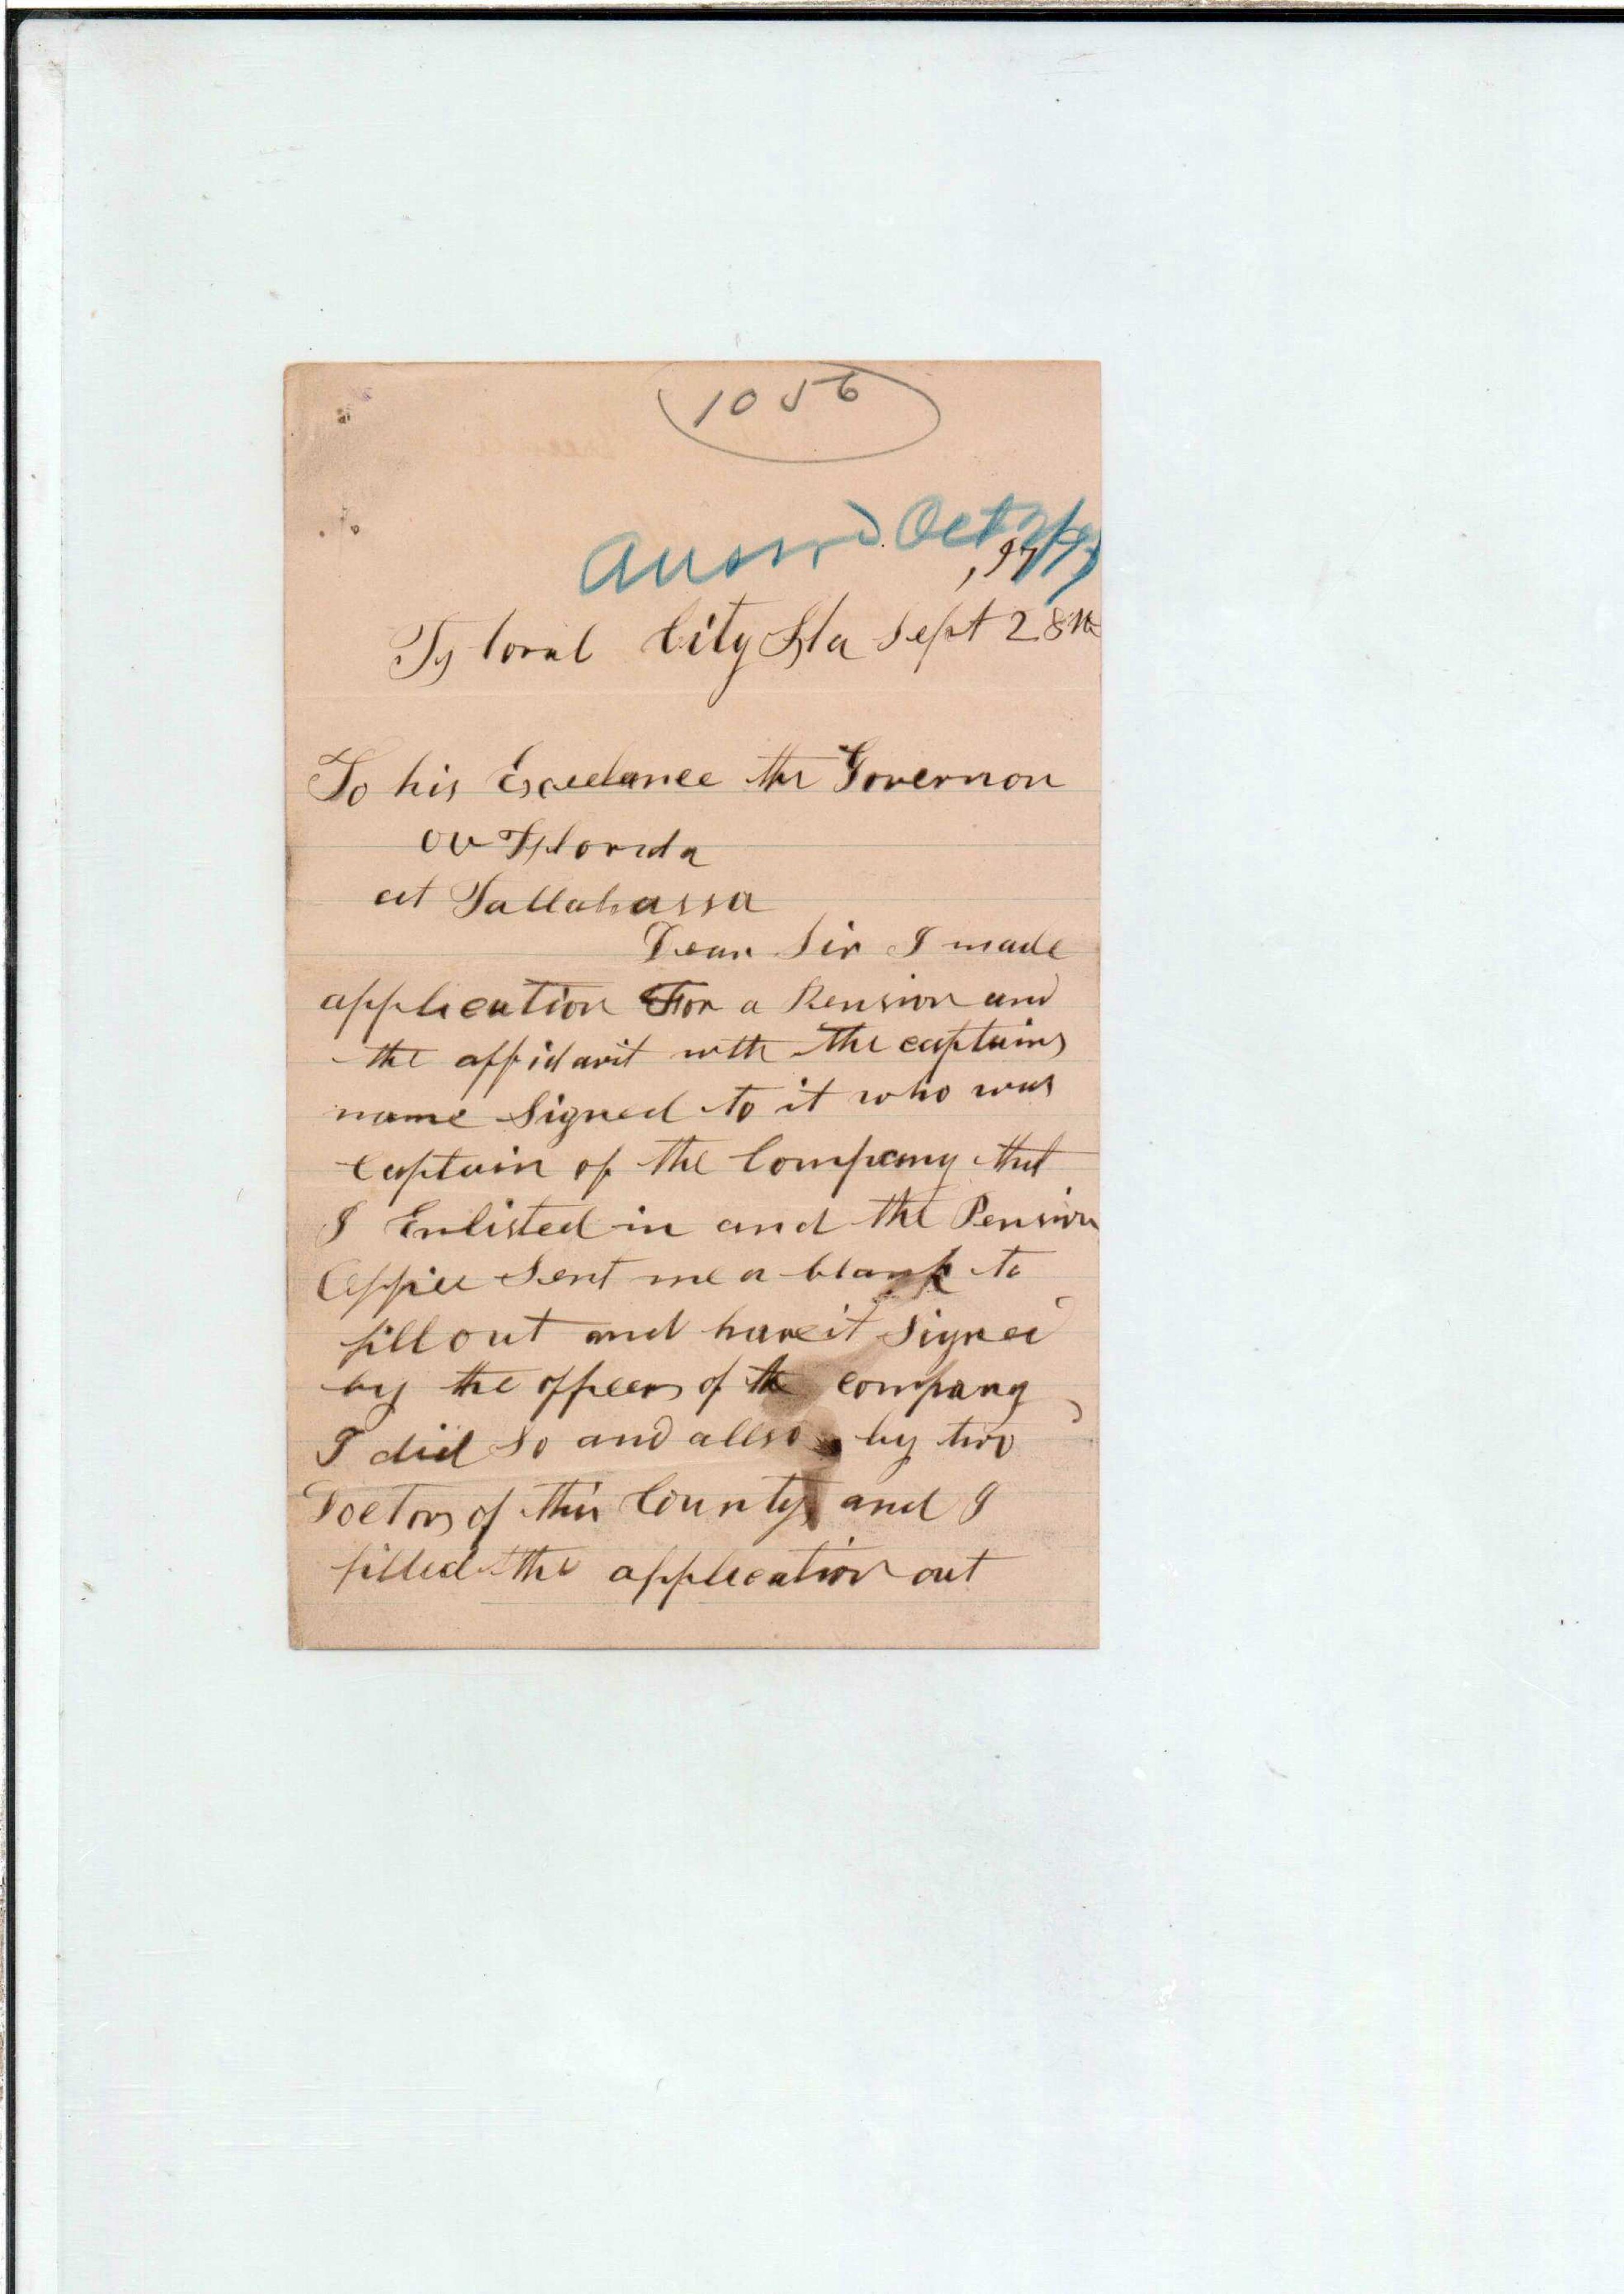 1056
Answrd. Oct
, 97
City Fla Sept 28th
To his Excelance the Governor
ov Florida
at Tallahassa
Dear Sir I made
application For a Pension and
the affidavit with the captains
name Signed to it who was
Captain of the Company that
I Enlisted in and the Pension
Office Sent me a blank to
fill out and have it Signed
by the officers of the company
I did So and allso by two
Doctors of this County and I
filled the application out